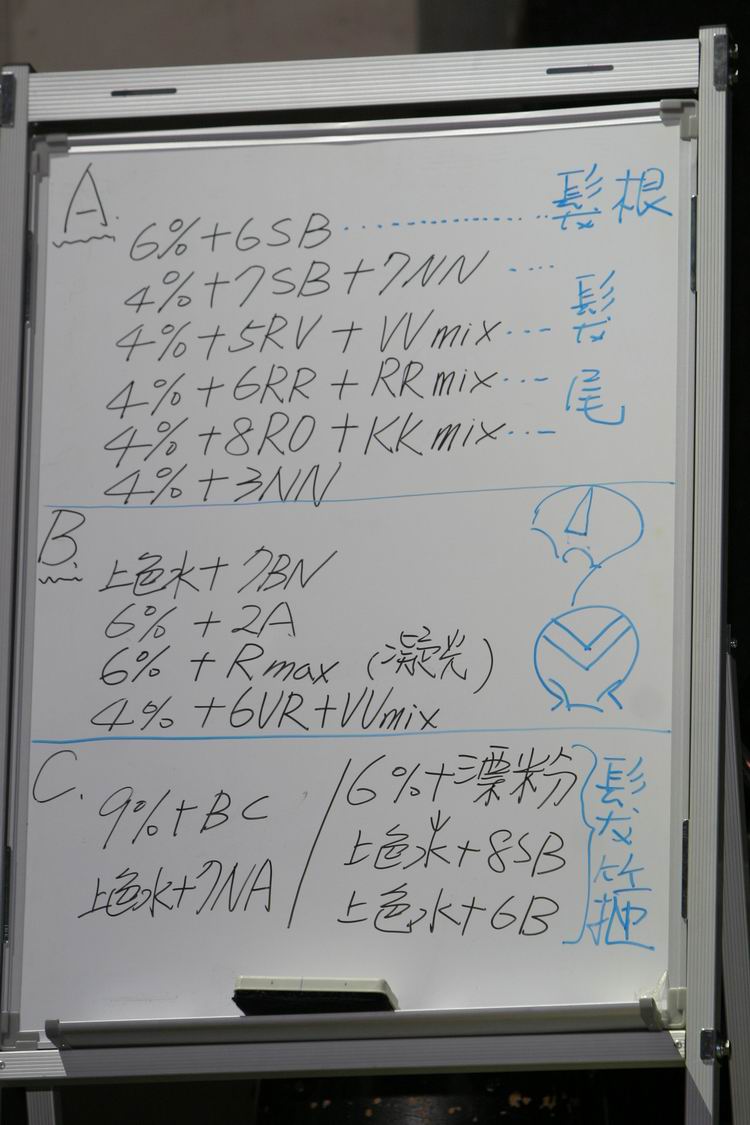 A.
6%+6SB ........ 髮根
4%+7SB+7NN .... 髮尾
4%+5RV+VVmix...
4%+6RR+RRmix...
4%+8RO+KKmix...
4%+3NN
B.
上色水+7BN
6%+2A
6%+Rmax (凝光)
4%+6VR+VVmix
C.
9%+BC
上色水+7NA
6%+漂粉
上色水+8SB
上色水+6B
髮